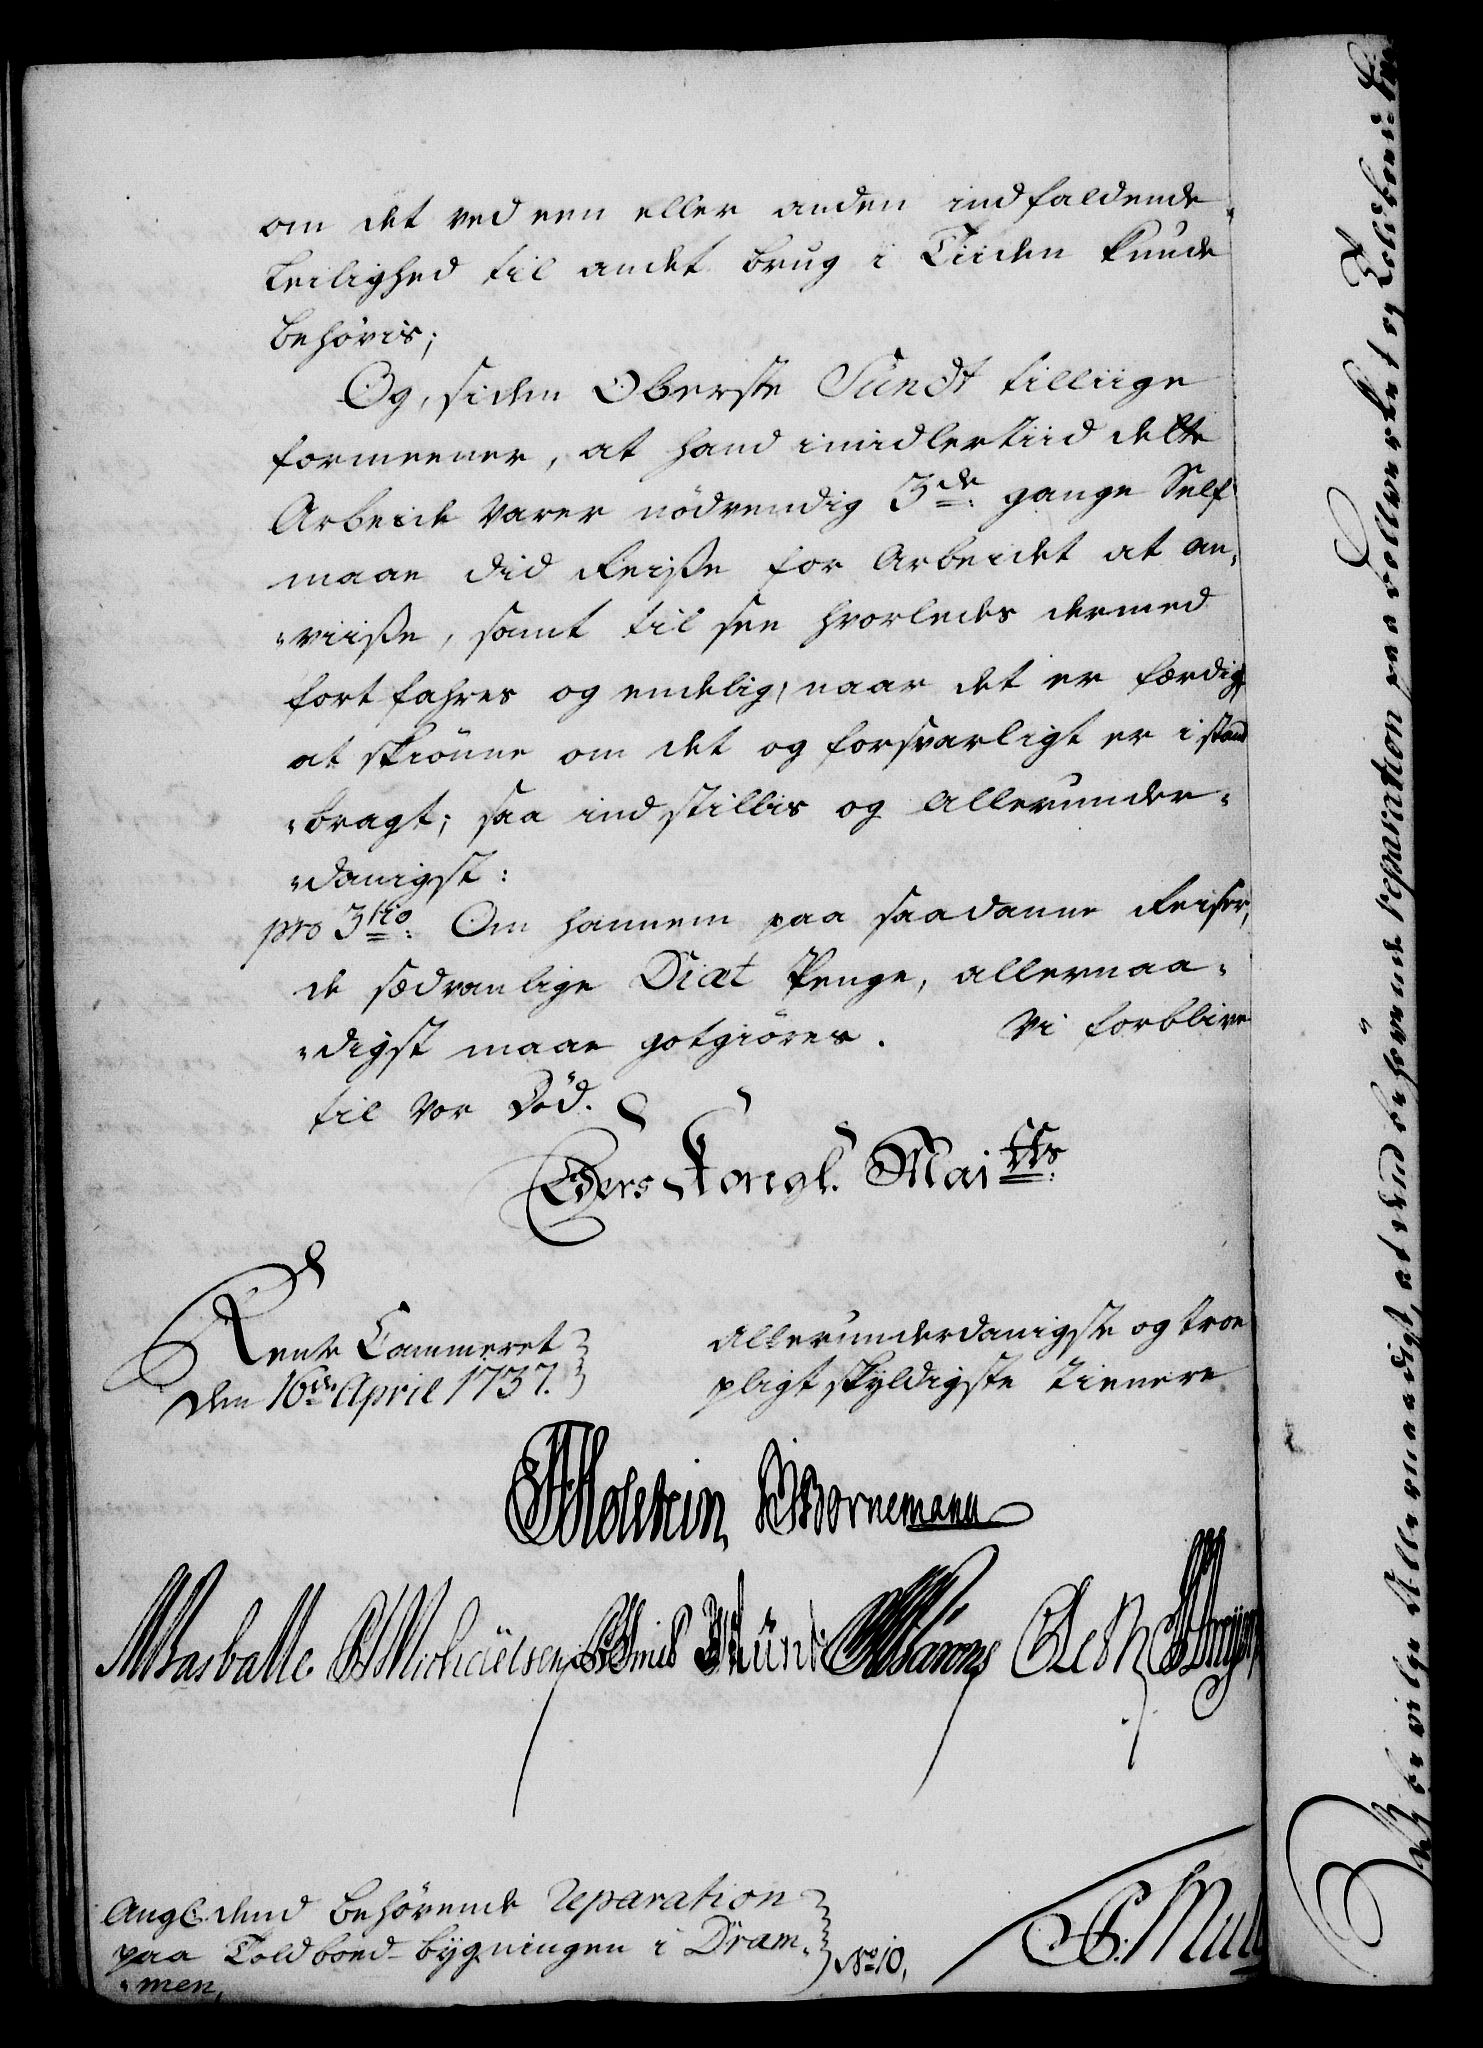 om det ved een eller anden indfaldende
Leilighed til andet brug i Tiiden kunde
behøvis;
Og, siden Oberste Sundt tilliige
formeener, at hand imidlertiid dette
Arbeide varer nødvendig 3de gange Self
maae did Reiße for Arbeidet at an„
„viiße, samt til see hvorledes dermed
fortfahres og endelig, naar det er færdig
at skiønne om det og forsvarligt er i stand
„bragt; saa indstillis og Allerunder„
„danigst:
pro 3tio. Om hannem paa saadanne Reiser,
de sædvanlige Diæt Penge, allernaa„
„digst maae gotgiøres. Vi forblive
til vor Død.
Eders Kongl. Maitts
Rente Cammeret
den 16de April 1737.
allerunderdanigste og troe
pligtskyldigste tienere
Holstein Bornemann
Basballe Michaelsen
Angl: dend behøvende reparation
paa Toldboed-bygningen i Dram„
„men,
No 10.
Bevilge Allernaadigst, at dend behøvende reparation paa bollverket og Toldboed